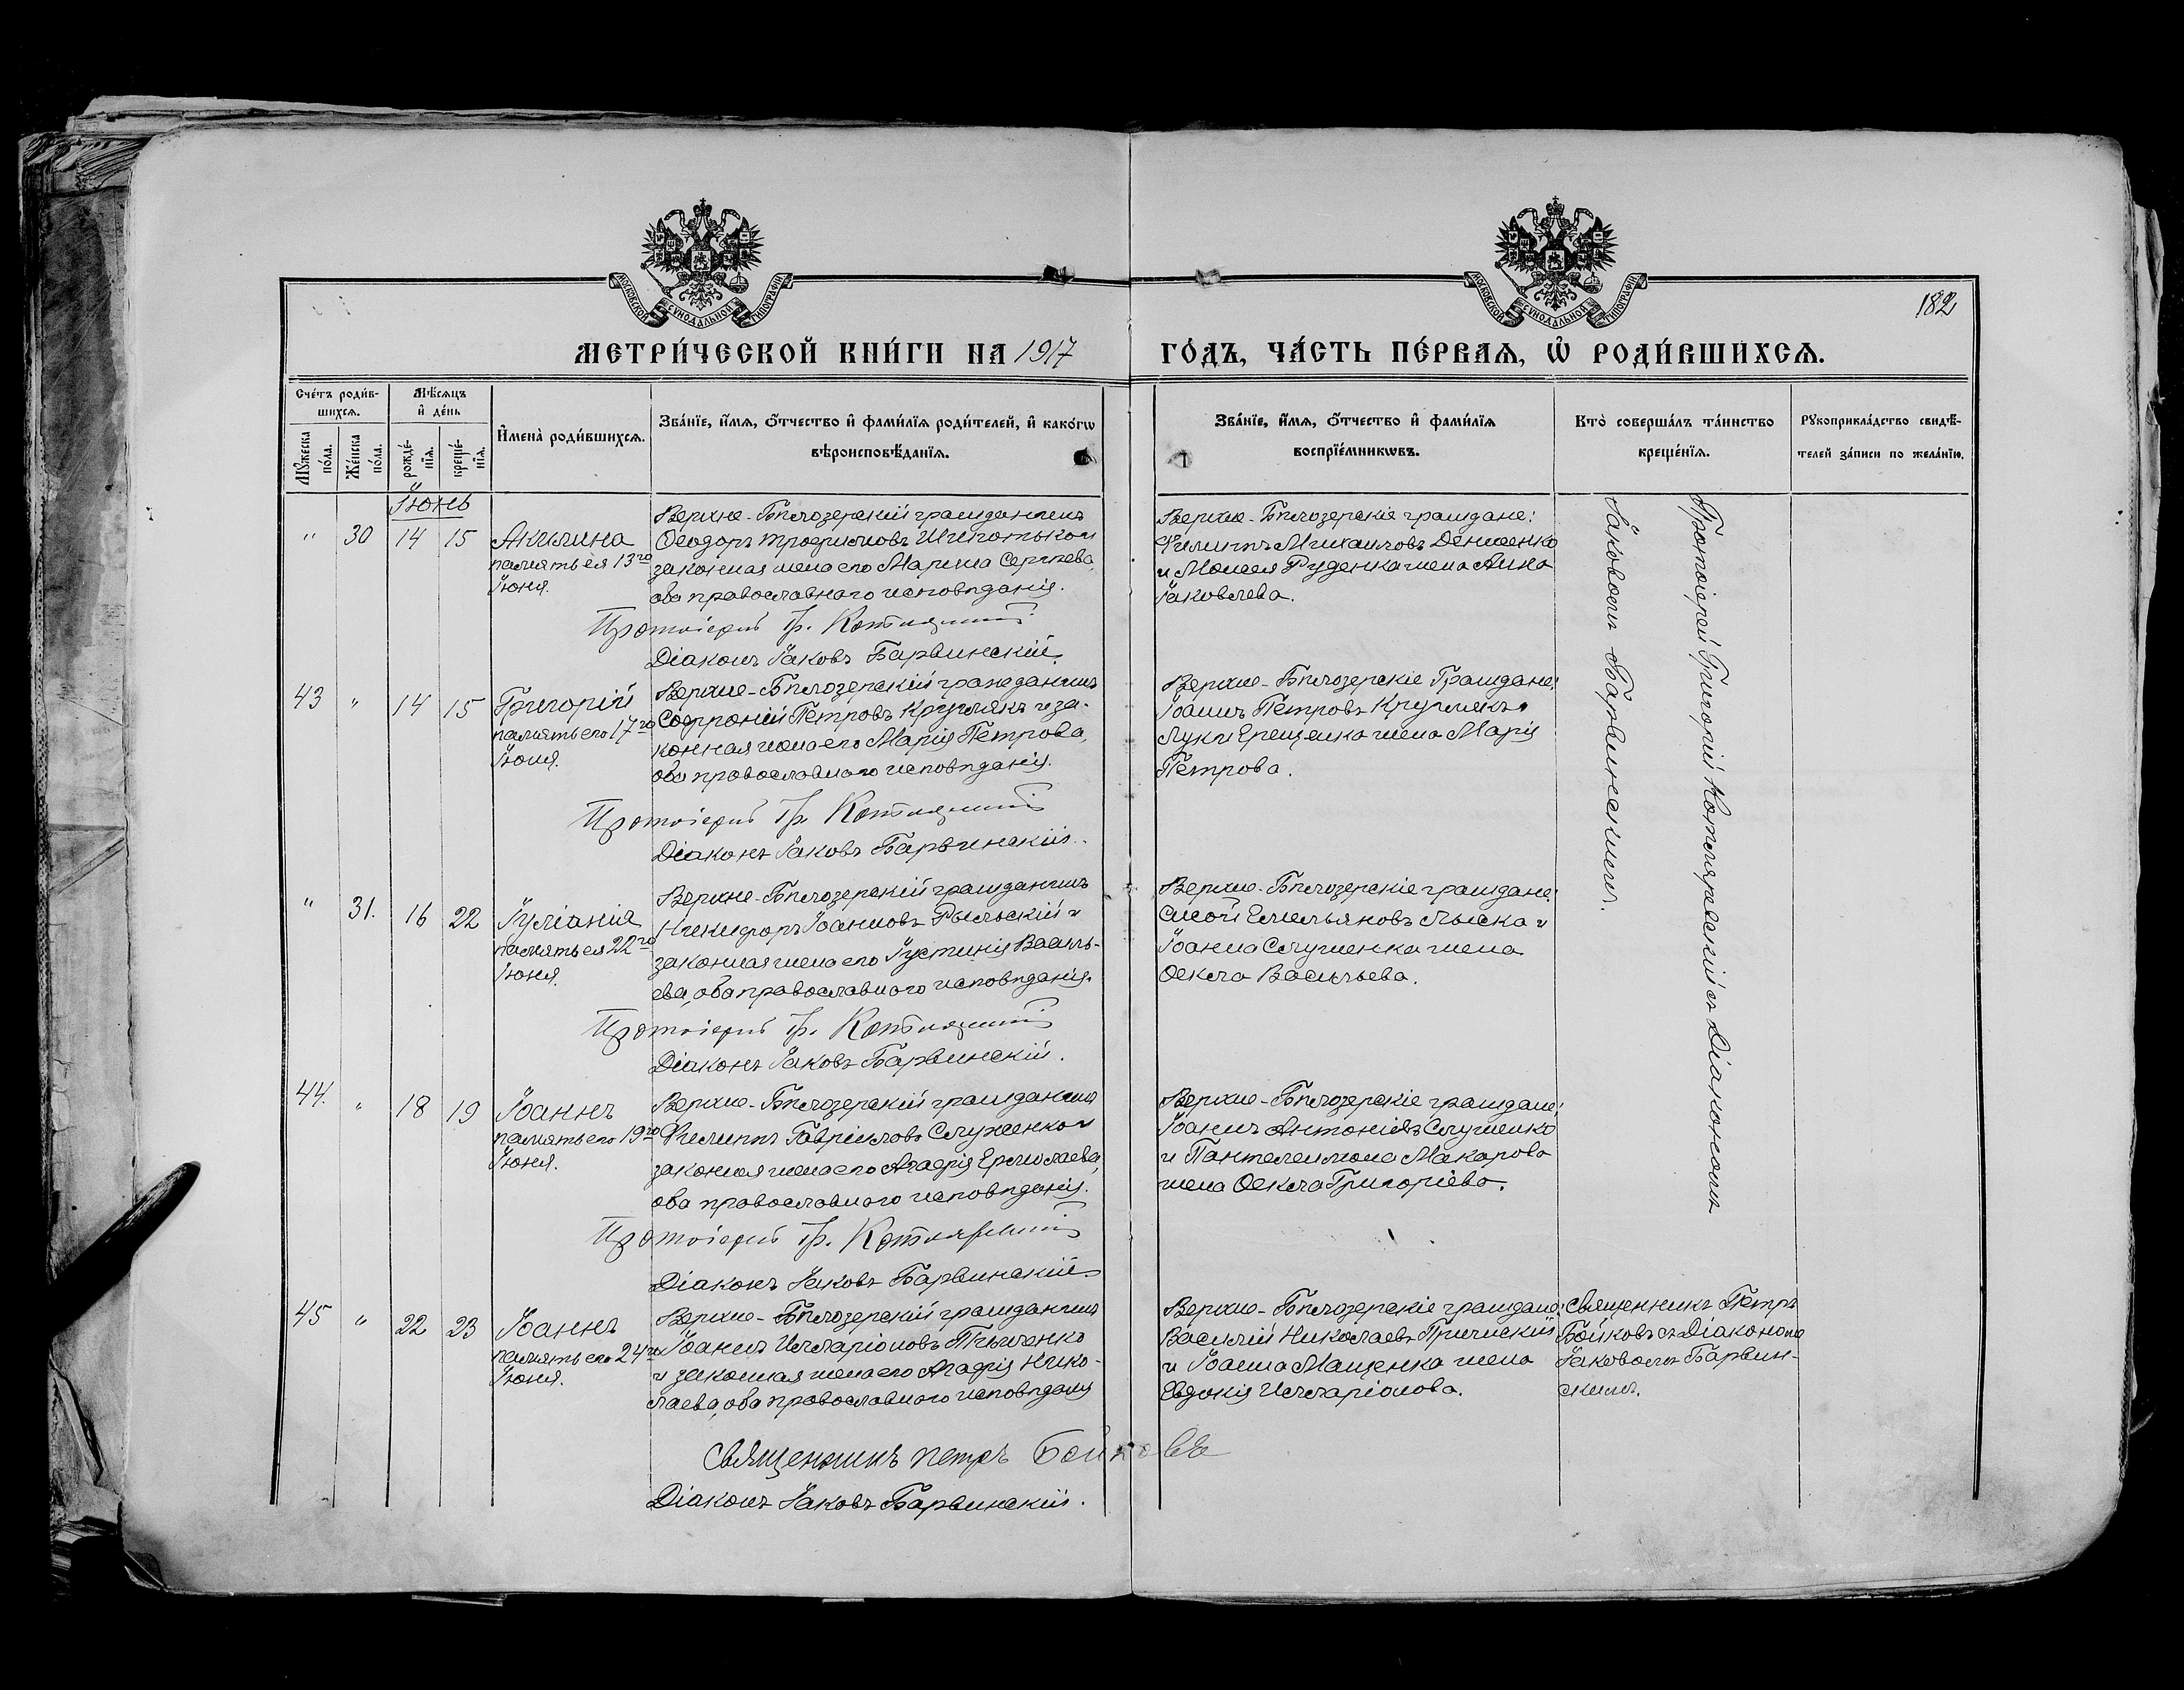 МОСКОВСКОЙ СѴНОДАЛЬНОЙ ТИПОГРАФІИ
МОСКОВСКОЙ СѴНОДАЛЬНОЙ ТИПОГРАФІИ
182
МЕТРИ́ЧЕСКОЙ КНИ́ГИ НА 1917
ГО́ДЪ, ЧА́СТЬ ПЕ́РВАѦ, Ѡ҆ РОДИ́ВШИХСѦ.
Сче́тъ роди́в-
шихсѧ.
Мѣ́сѧцъ
и҆ де́нь
Мꙋ́жеска
по́ла.
Же́нска
по́ла.
рожде́-
нїѧ.
креще́-
нїѧ.
И҆мена̀ роди́вшихсѧ.
Зва́нїе, и҆́мѧ, ѻ҆́тчество и҆ фами́лїѧ роди́телей, и҆ како́гѡ
вѣроисповѣ́данїѧ.
Зва́нїе, и҆́мѧ, ѻ҆́тчество и҆ фами́лїѧ
воспрїе́мникѡвъ.
Кто̀ соверша́лъ та́инство
креще́нїѧ.
Рꙋкоприкла́дство свидѣ́-
телей за́писи по жела́нїю.
Іюнь
" 30 14 15
Акилина
память ея 13го
Іюня.
Верхне-Бѣлозерскій гражданинъ
Ѳеодоръ Трофимовъ и
законная жена его Марина Сергѣева,
оба православнаго исповѣданія.
Протоіерей Гр. Котляревскій
Діаконъ Іаковъ Барвинскій.
Верхне-Бѣлозерскіе граждане:
Филиппъ Михаиловъ Денисенко
и Моисея Руденка жена Анна
Іаковлева.
Протоіерей Григорій Котляревскій съ Діакономъ
Іаковомъ Барвинскимъ.
43 " 14 15
Григорій
память его 17го
Іюня.
Верхне-Бѣлозерскій гражданинъ
Софроній Петровъ Кругликъ и за-
конная жена его Марія Петрова,
оба православнаго исповѣданія.
Протоіерей Гр. Котляревскій
Діаконъ Іаковъ Барвинскій.
Верхне-Бѣлозерскіе Граждане:
Іоаннъ Петровъ Кругликъ и
Луки Ерещенка жена Марія
Петрова.
" 31. 16 22
Іуліанія
память ея 22го
Іюня.
Верхне-Бѣлозерскій гражданинъ
Никифоръ Іоанновъ Рыльскій и
законная жена его Іустинія Василь-
ева, оба православнаго исповѣданія.
Протоіерей Гр. Котляревскій
Діаконъ Іаковъ Барвинскій.
Верхне-Бѣлозерскіе граждане:
Емельяновъ Лыска и
Іоанна Служенка жена
Ѳекла Васильева.
44. " 18 19
Іоаннъ
память его 19го
Іюня.
Верхне-Бѣлозерскій гражданинъ
Филиппъ Гавріиловъ Служенко и
законная жена его Агафія Ермолаева,
оба православнаго исповѣданія.
Протоіерей Гр. Котляревскій
Діаконъ Іаковъ Барвинскій
Верхне-Бѣлозерскіе граждане:
Іоаннъ Антоніевъ Служенко
и Пантелеимона Макарова
жена Ѳекла Григоріева.
45 " 22 23
Іоаннъ
память его 24го
Іюня.
Верхне-Бѣлозерскій гражданинъ
Іоаннъ Илларіоновъ
и законная жена его Агафія Нико-
лаева, оба православнаго исповѣданія
Священникъ Петръ Бойковъ
Діаконъ Іаковъ Барвинскій.
Верхне-Бѣлозерскіе граждане:
Василій Николаевъ
и Іоанна Мащенка жена
Евдокія Илларіонова.
Священникъ Петръ
Бойковъ съ Діакономъ
Іаковомъ Барвин-
скимъ.